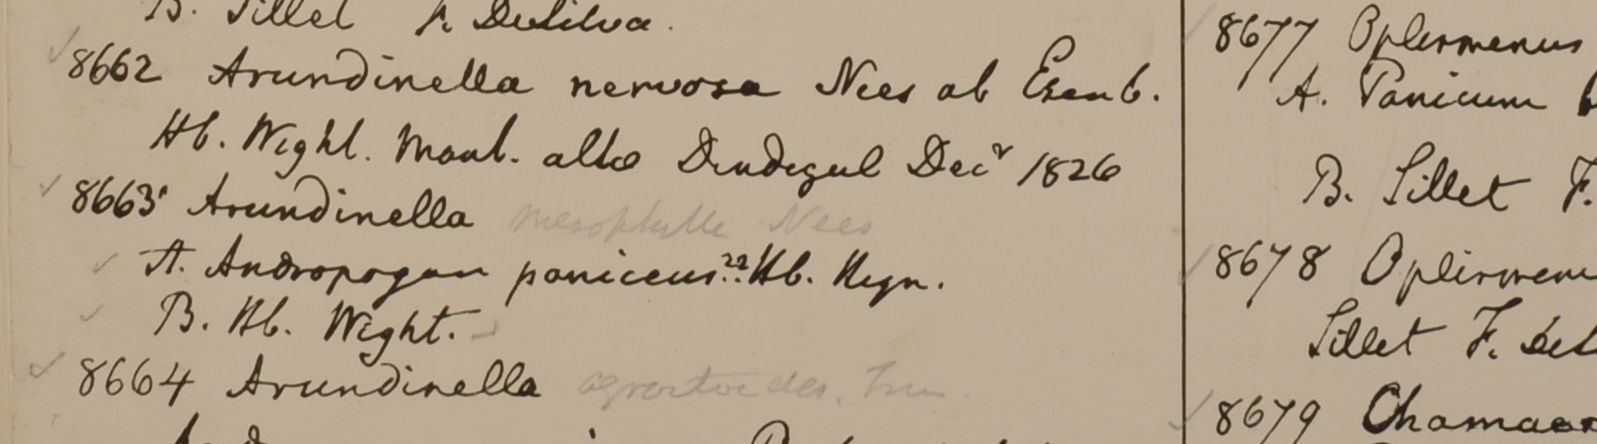 B. Sillet F. DeSilva.
8662 Arundinella nervosa Nees ab Esenb.
Hb. Wight. Mont. alto Dindegul Decr 1826
8663 Arundinella mesophylla Nees
A. Andropogon paniceus?? Hb. Heyn.
B. Hb. Wight.
8664 Arundinella agrostoides. Trin
8677 Oplismenus
A. Panicum
B. Sillet F.
8678 Oplismenu
Sillet F. deS
8679 Chamaer